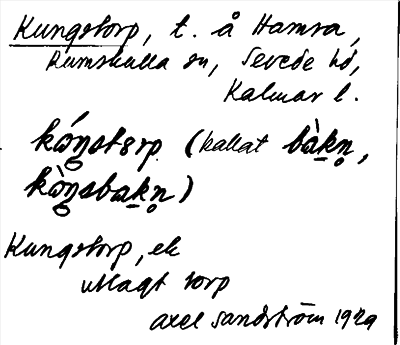 Kungstorp, t. å Hamra,
Rumskulla sn, Sevede hd,
Kalmar l.
(kallat bàkn̥,
Kungstorp, ek
utlagt torp
Axel Sandström 1929